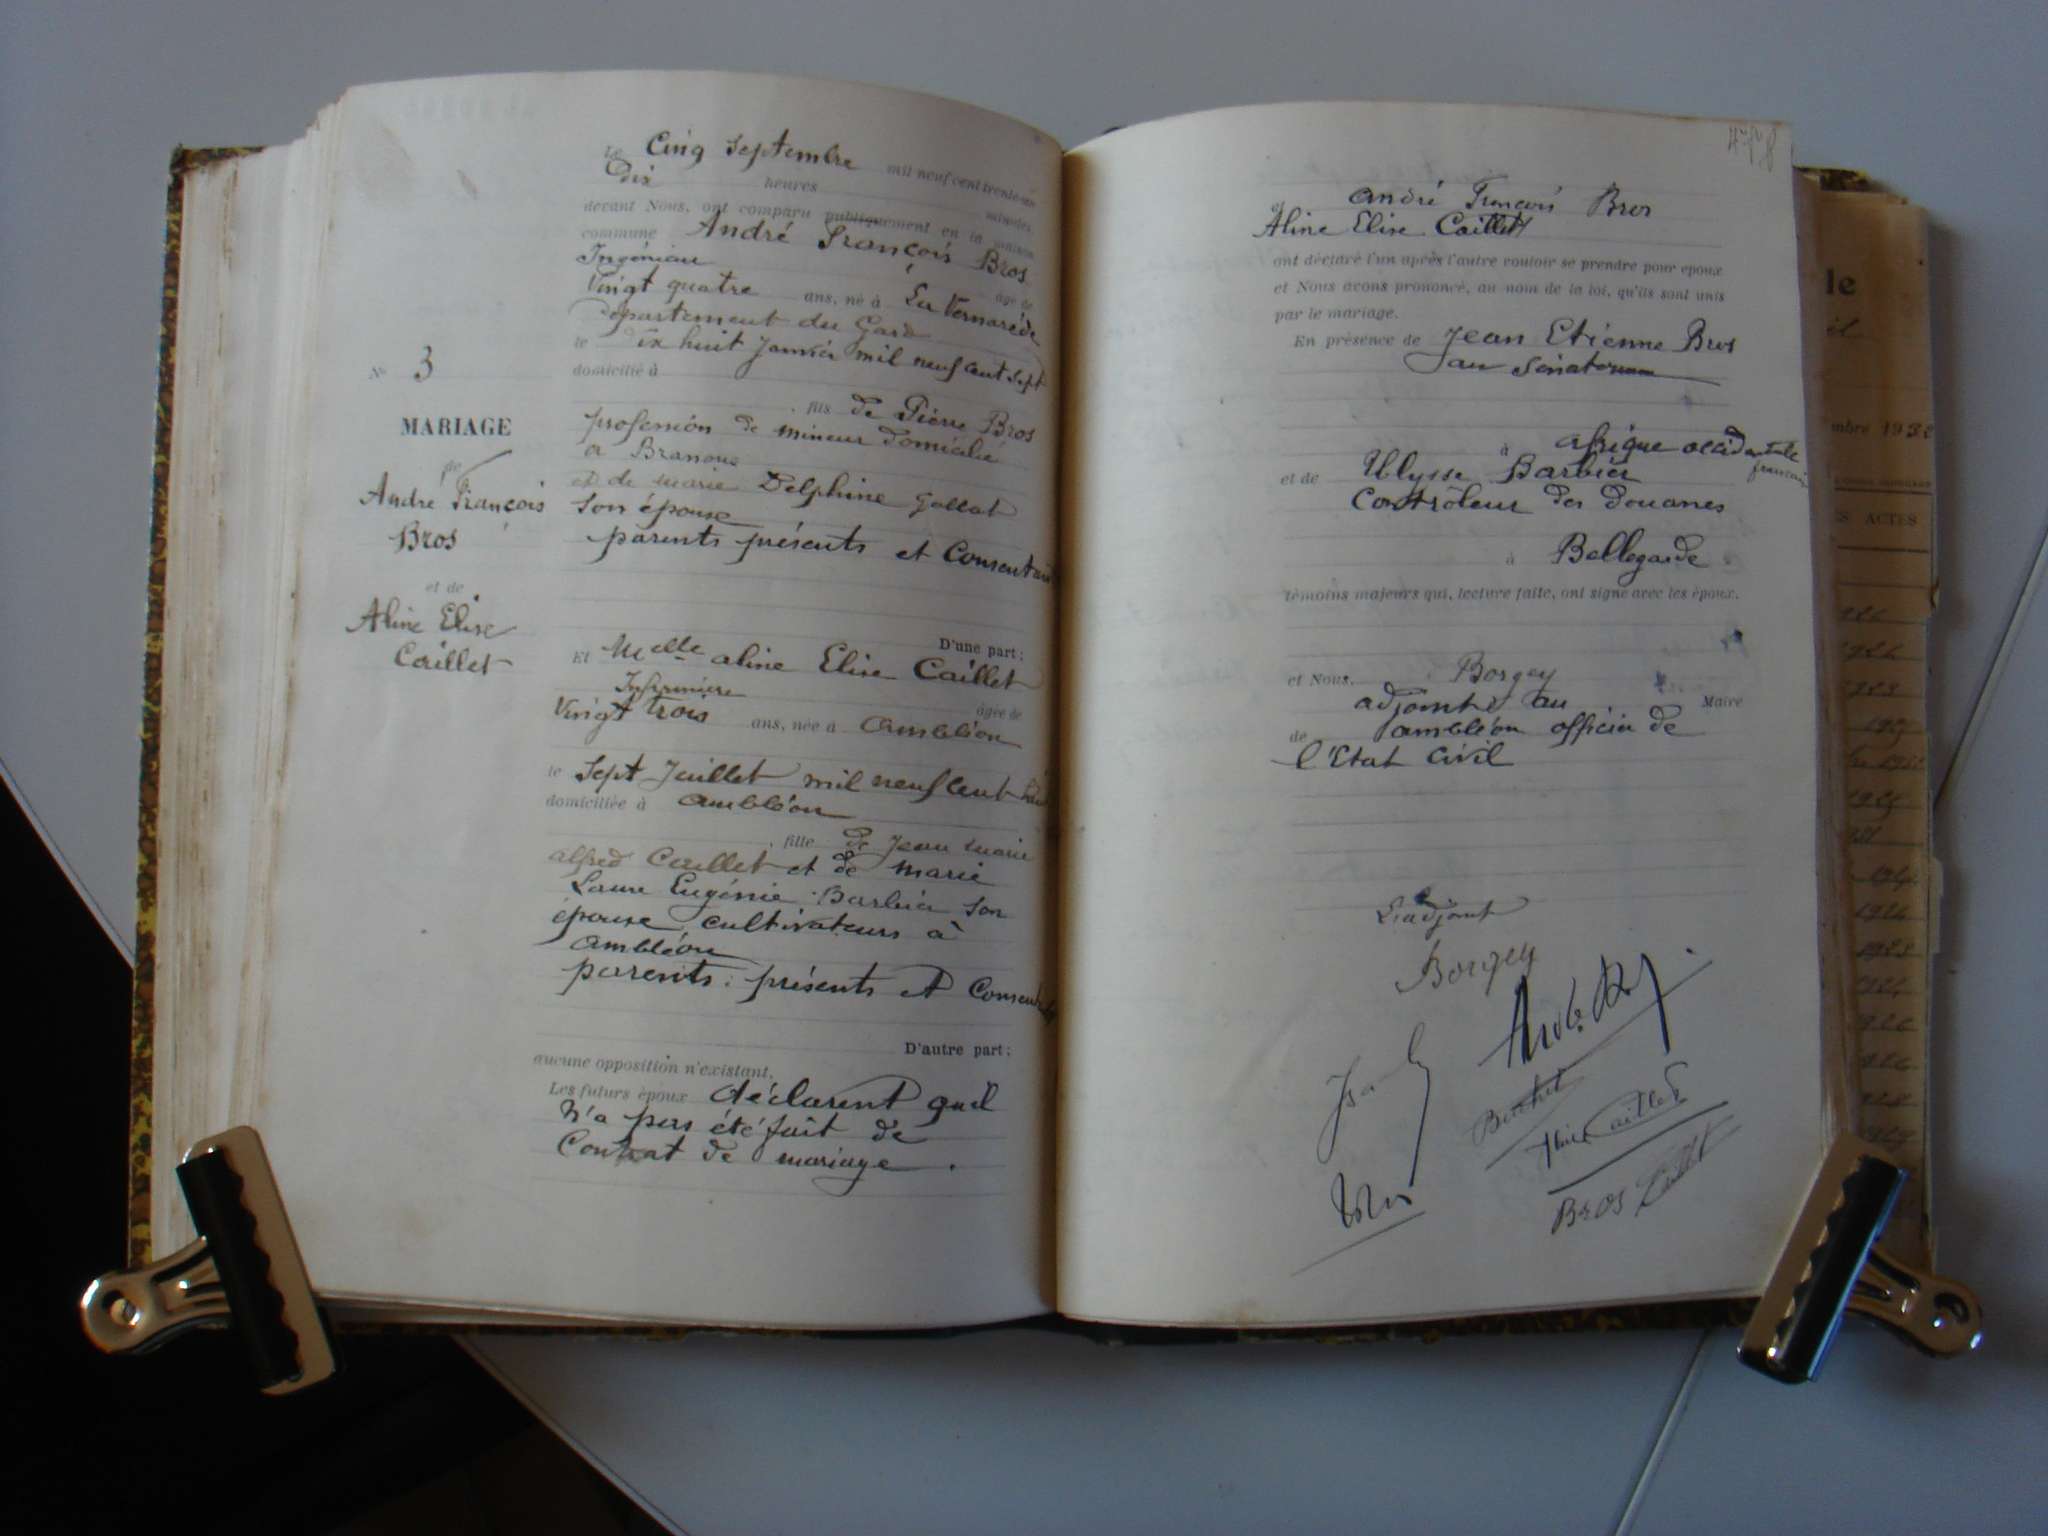 Le Cinq Septembre mil neuf cent trente-un
Dix heures minutes,
devant Nous, ont comparu publiquement en la maison
commune André François Bros
Ingénieur âgé de
Vingt quatre ans, né à La Vernarède
Département du Gard
le Dix huit Janvier mil neuf cent sept
domicilié à
, fils de Pierre Bros
profession de mineur domicilié
a Branoux
et de marie Delphine
son épouse
parents présents et Consentants
D'une part;
Et Melle aline Elise Caillet
Infirmière âgée de
Vingt trois ans, née à ambléon
le Sept Juillet mil neuf cent huit
domiciliée à ambléon
, fille de Jean marie
alfred Caillet et de marie
Laure Eugénie Barbier son
épouse cultivateurs à
ambléon
parents présents et Consentants
D'autre part;
aucune opposition n'existant.
Les futurs époux déclarent quil
N'a pas été fait de
Contrat de mariage.
No 3
MARIAGE
de
André François
Bros
et de
Aline Elise
Caillet
478
et André François Bros
Aline Elise Caillet
ont déclaré l'un après l'autre vouloir se prendre pour époux
et Nous avons prononcé, au nom de la loi, qu'ils sont unis
par le mariage.
En présence de Jean Etienne Bros
à afrique occidentale
française
et de Ulysse Barbier
Contrôleur des douanes
à Bellegarde
témoins majeurs qui, lecture faite, ont signé avec les époux.
et Nous, Borgey
adjoint au Maire
de ambléon officier de
l'Etat Civil
L'adjoint
Borgey
Aline Caillet
Bros Caillet
le
mbre 1932
ACTES